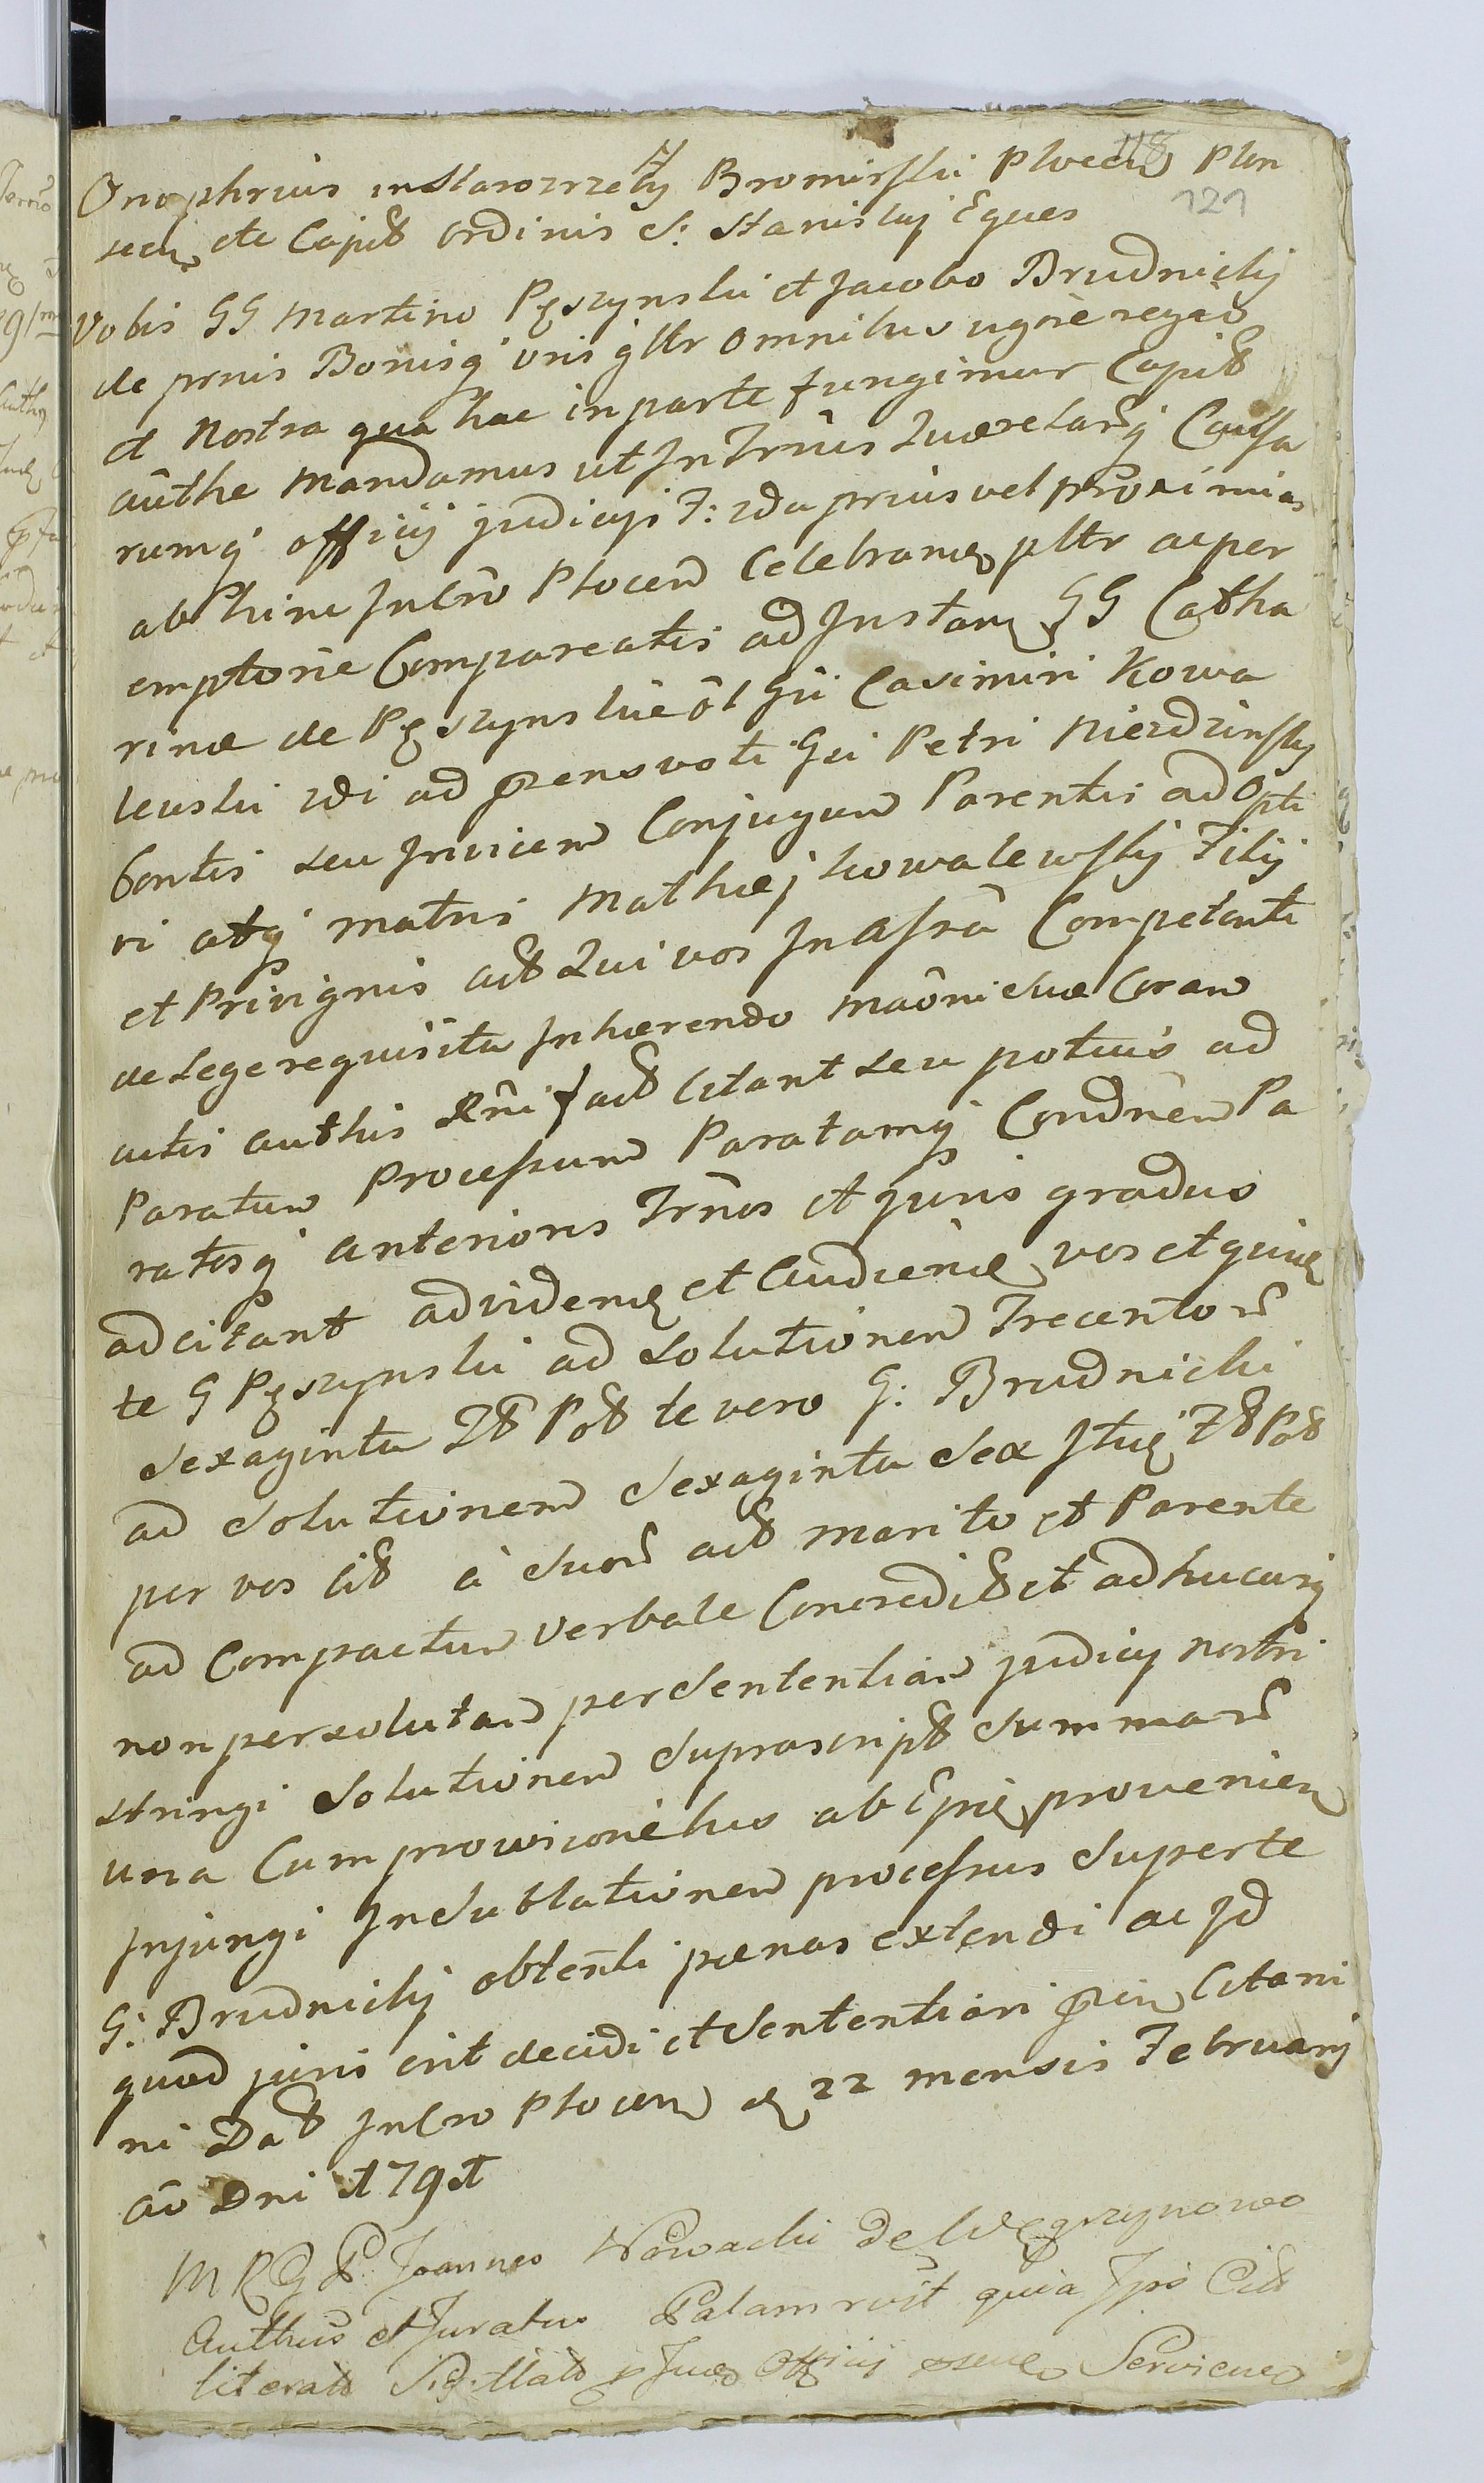 118
121
Onophrius in Starozrzeby Bromirski Plocen Plon
scen etc Capit Ordinis S: Stanislai Eques
Vobis GG Martino Pęszynski et Jacobo Brudnickij
de prnis Bonisq vris gltr omnibus vigore regia
et Nostra qua hac in parte fungimur Capit
authe mandamus ut in Trnis Querelarq Caussa
rumq officij judicijs T: rda prius vel proximia
abhinc In Cro Plocen Celebran pltr ac per
emptorie Compareatis ad Instan GG Catha
rinæ de Pęszynskie ol Gii Casimiri Kowa
lewski rdi ad præns voti Gii Petri Niedzinskij
Contis seu Invicem Conjugum Parentis adopti
vi atq matris Mathæj Kowalewskij Filij
et Privignis act Qui vos In Assra Competenti
de Lege requisita Inhærendo maoni suæ Coram
actis authis rni fact Citant seu potius ad
Paratum Processum Paratamq Condnem Pa
ratosq anterioris Trnos et juris gradus
adcitant ad viden et Audien vos et quin
te G Pęszynski ad solutionem Trecentor
sexaginta Zł Poł te vero G: Brudnicki
ad solutionem sexaginta sex Itie Zł Poł
per vos Cit à suor act marito et Parente
ad Compactum verbale Concredit et adhucusq
non persolutam per Sententiam judicij nostri
stringi solutionem suprascript summar
una Cum prowizionibus ab Ipsis provenien
Injungi In sublationem processus super te
G: Brudnickij obtenti pænas extendi ac Id
quod juris erit decidi et Sententiari prin Citami
ni Dat In Cro Plocen d 22 mensis Februarij
Ao Dni 1791
M R G P Joannes Nowacki de Węgrzynowo
Authus et Juratus Palam rcit quia Ipse Cit
literato Sigillato p Jud Officij Servien